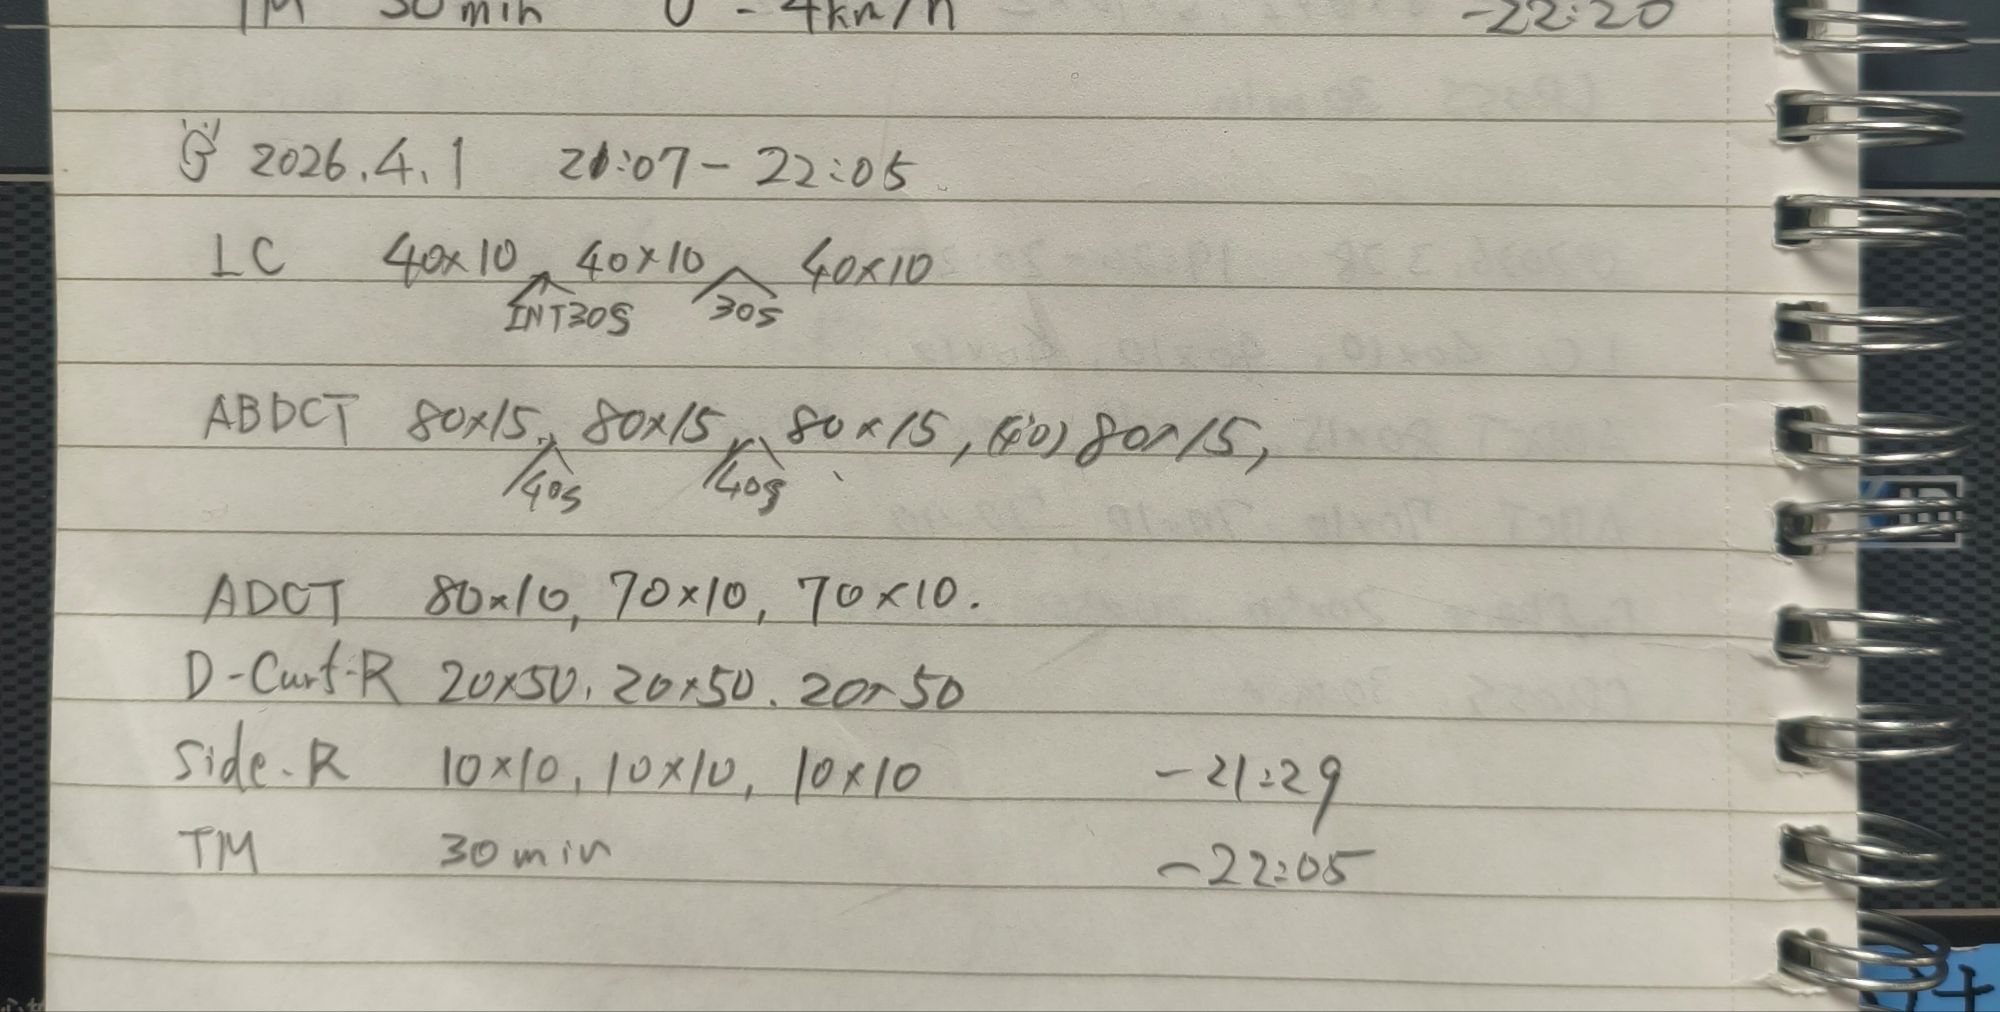 TM 30 min 0 - 4km/h -22:20
2026.4.1 21:07 - 22:05
LC 40x10 40x10 40x10
INT30s 30s
ABDCT 80x15, 80x15, 80x15, (40) 80x15,
40s 40s
ADCT 80x10, 70x10, 70x10.
D-Curf-R 20x50. 20x50. 20x50
Side-R 10x10, 10x10, 10x10 -21:29
TM 30min -22:05